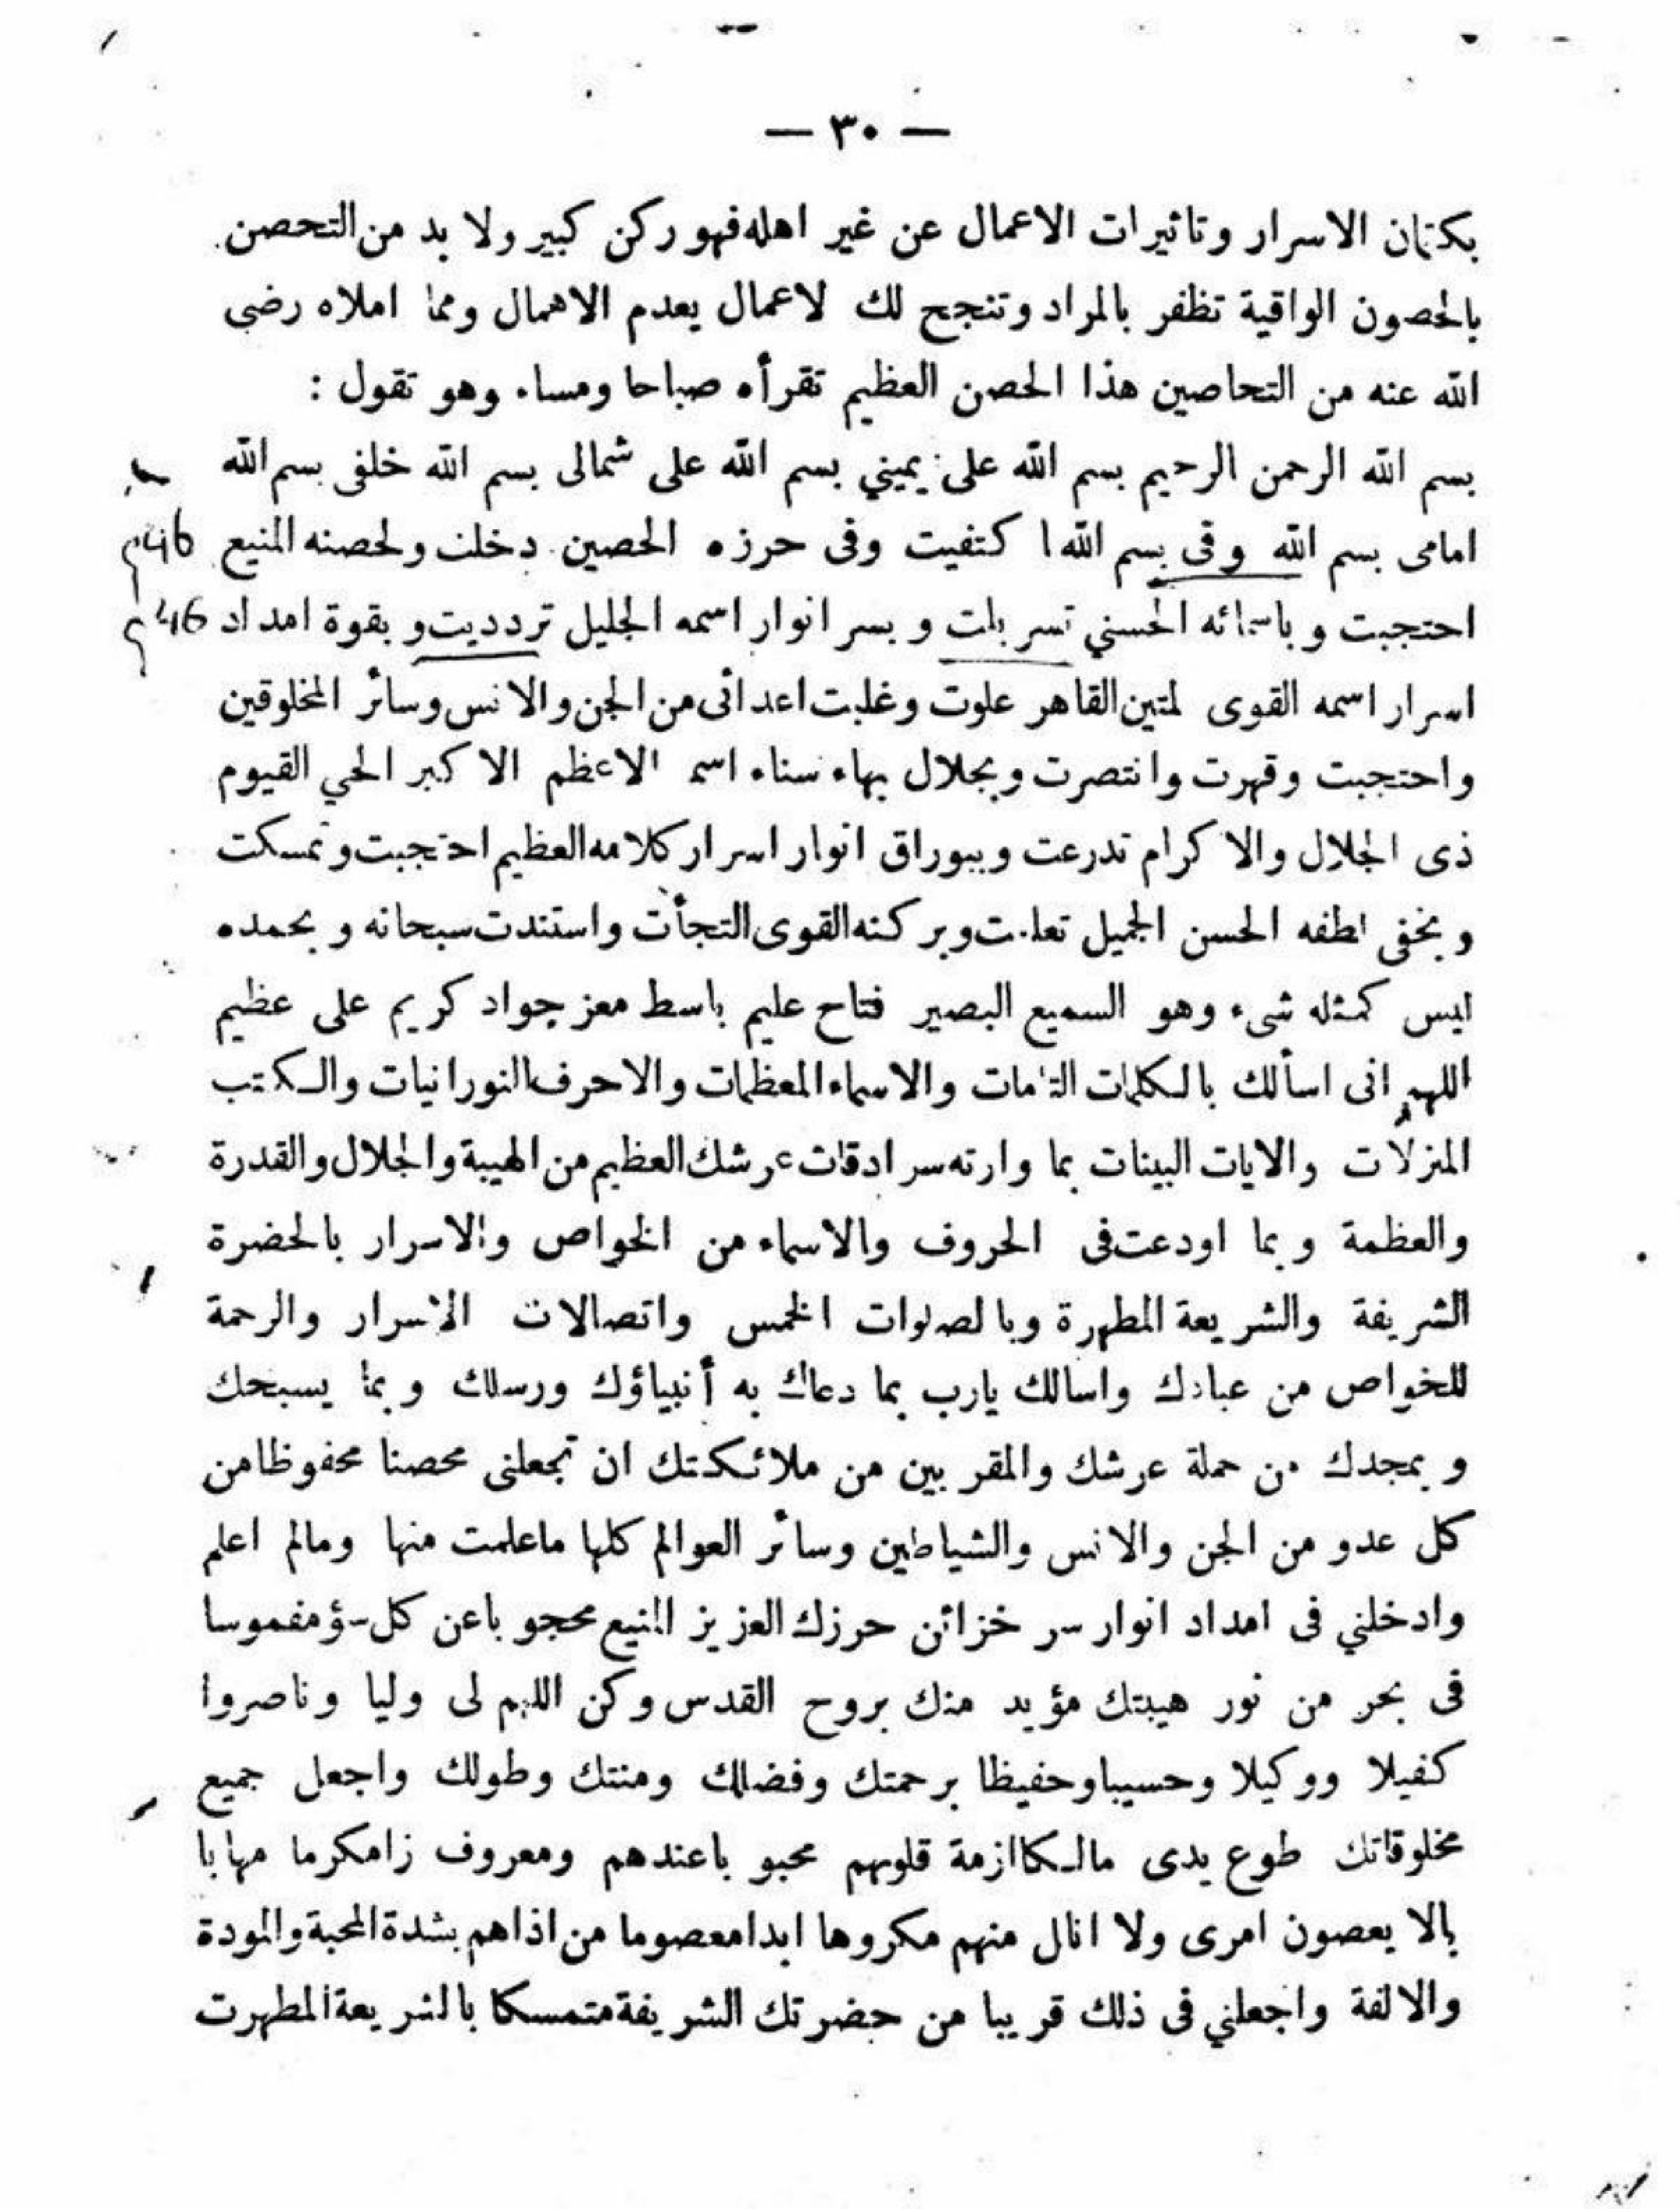 — ٣٠ —
بكتمان الاسرار وتاثيرات الاعمال عن غير اهله فهو ركن كبير ولا بد من التحصن
بالحصون الواقية تظفر بالمراد وتنجح لك لاعمال يعدم الاهمال ومما املاه رضى
الله عنه من التحاصين هذا الحصن العظيم تقرأه صباحا ومساء وهو تقول :
بسم الله الرحمن الرحيم بسم الله على يميني بسم الله على شمالى بسم الله خلفى بسم الله
امامى بسم الله وقى بسم الله ا كتفيت وفى حرزه الحصين دخلت ولحصنه المنيع
احتجبت و باسمائه الحسني تسربلت و بسر انوار اسمه الجليل ترديت و بقوة امداد
اسرار اسمه القوى لمتين القاهر علوت وغلبت اعدائى من الجن والانس وسائر المخلوقين
واحتجبت وقهرت وانتصرت وبجلال بهاء سناء اسم الاعظم الاكبر الحي القيوم
ذى الجلال والاكرام تدرعت وببوراق انوار اسرار كلامه العظيم احتجبت وتمسكت
و بخفى لطفه الحسن الجميل وبركنه القوى التجأت واستندت سبحانه و بحمده
ليس كمثله شىء وهو السميع البصير فتاح عليم باسط معز جواد كريم على عظيم
اللهم انى اسألك بالكلمات التامات والاسماء المعظمات والاحرف النورانيات والكتب
المنزلات والايات البينات بما وارته سرادقات عرشك العظيم من الهيبة والجلال والقدرة
والعظمة و بما اودعت فى الحروف والاسماء من الخواص والاسرار بالحضرة
الشريفة والشريعة المطهرة وبالصلوات الخمس واتصالات الاسرار والرحمة
للخواص من عبادك واسالك يارب بما دعاك به أنبياؤك ورسلك و بما يسبحك
و بمجدك من حملة عرشك والمقربين من ملائكتك ان تجعلنى محصنا محفوظا من
كل عدو من الجن والانس والشياطين وسائر العوالم كلها ماعلمت منها ومالم اعلم
وادخلني فى امداد انوار سر خزائن حرزك العزيز المنيع محجوبا عن كل سؤ مفموسا
فى بحر من نور هيبتك مؤيد منك بروح القدس وكن اللهم لى وليا وناصروا
كفيلا ووكيلا وحسيبا وحفيظا برحمتك وفضلك ومنتك وطولك واجعل جميع
مخلوقاتك طوع يدى مالكا ازمة قلوبهم محبوبا عندهم ومعروف زا مكرما مهابا
بالا يعصون امرى ولا انال منهم مكروها ابدا معصوما من اذاهم بشدة المحبة والمودة
والالفة واجعلني فى ذلك قريبا من حضرتك الشريفة متمسكا بالشريعة المطهرت